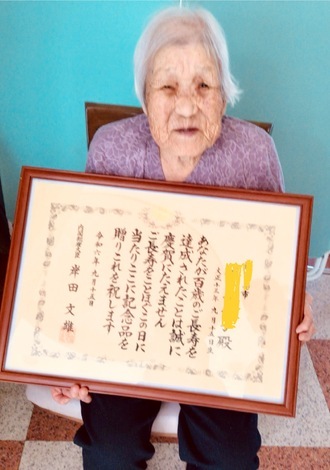 市
殿
大正十三年 九月 日生
あなたが百歳のご長寿を
達成されたことは誠に
慶賀にたえません
ご長寿をことほぎこの日に
当たりここに記念品を
贈りこれを祝します
令和六年九月十五日
内閣総理大臣 岸田文雄